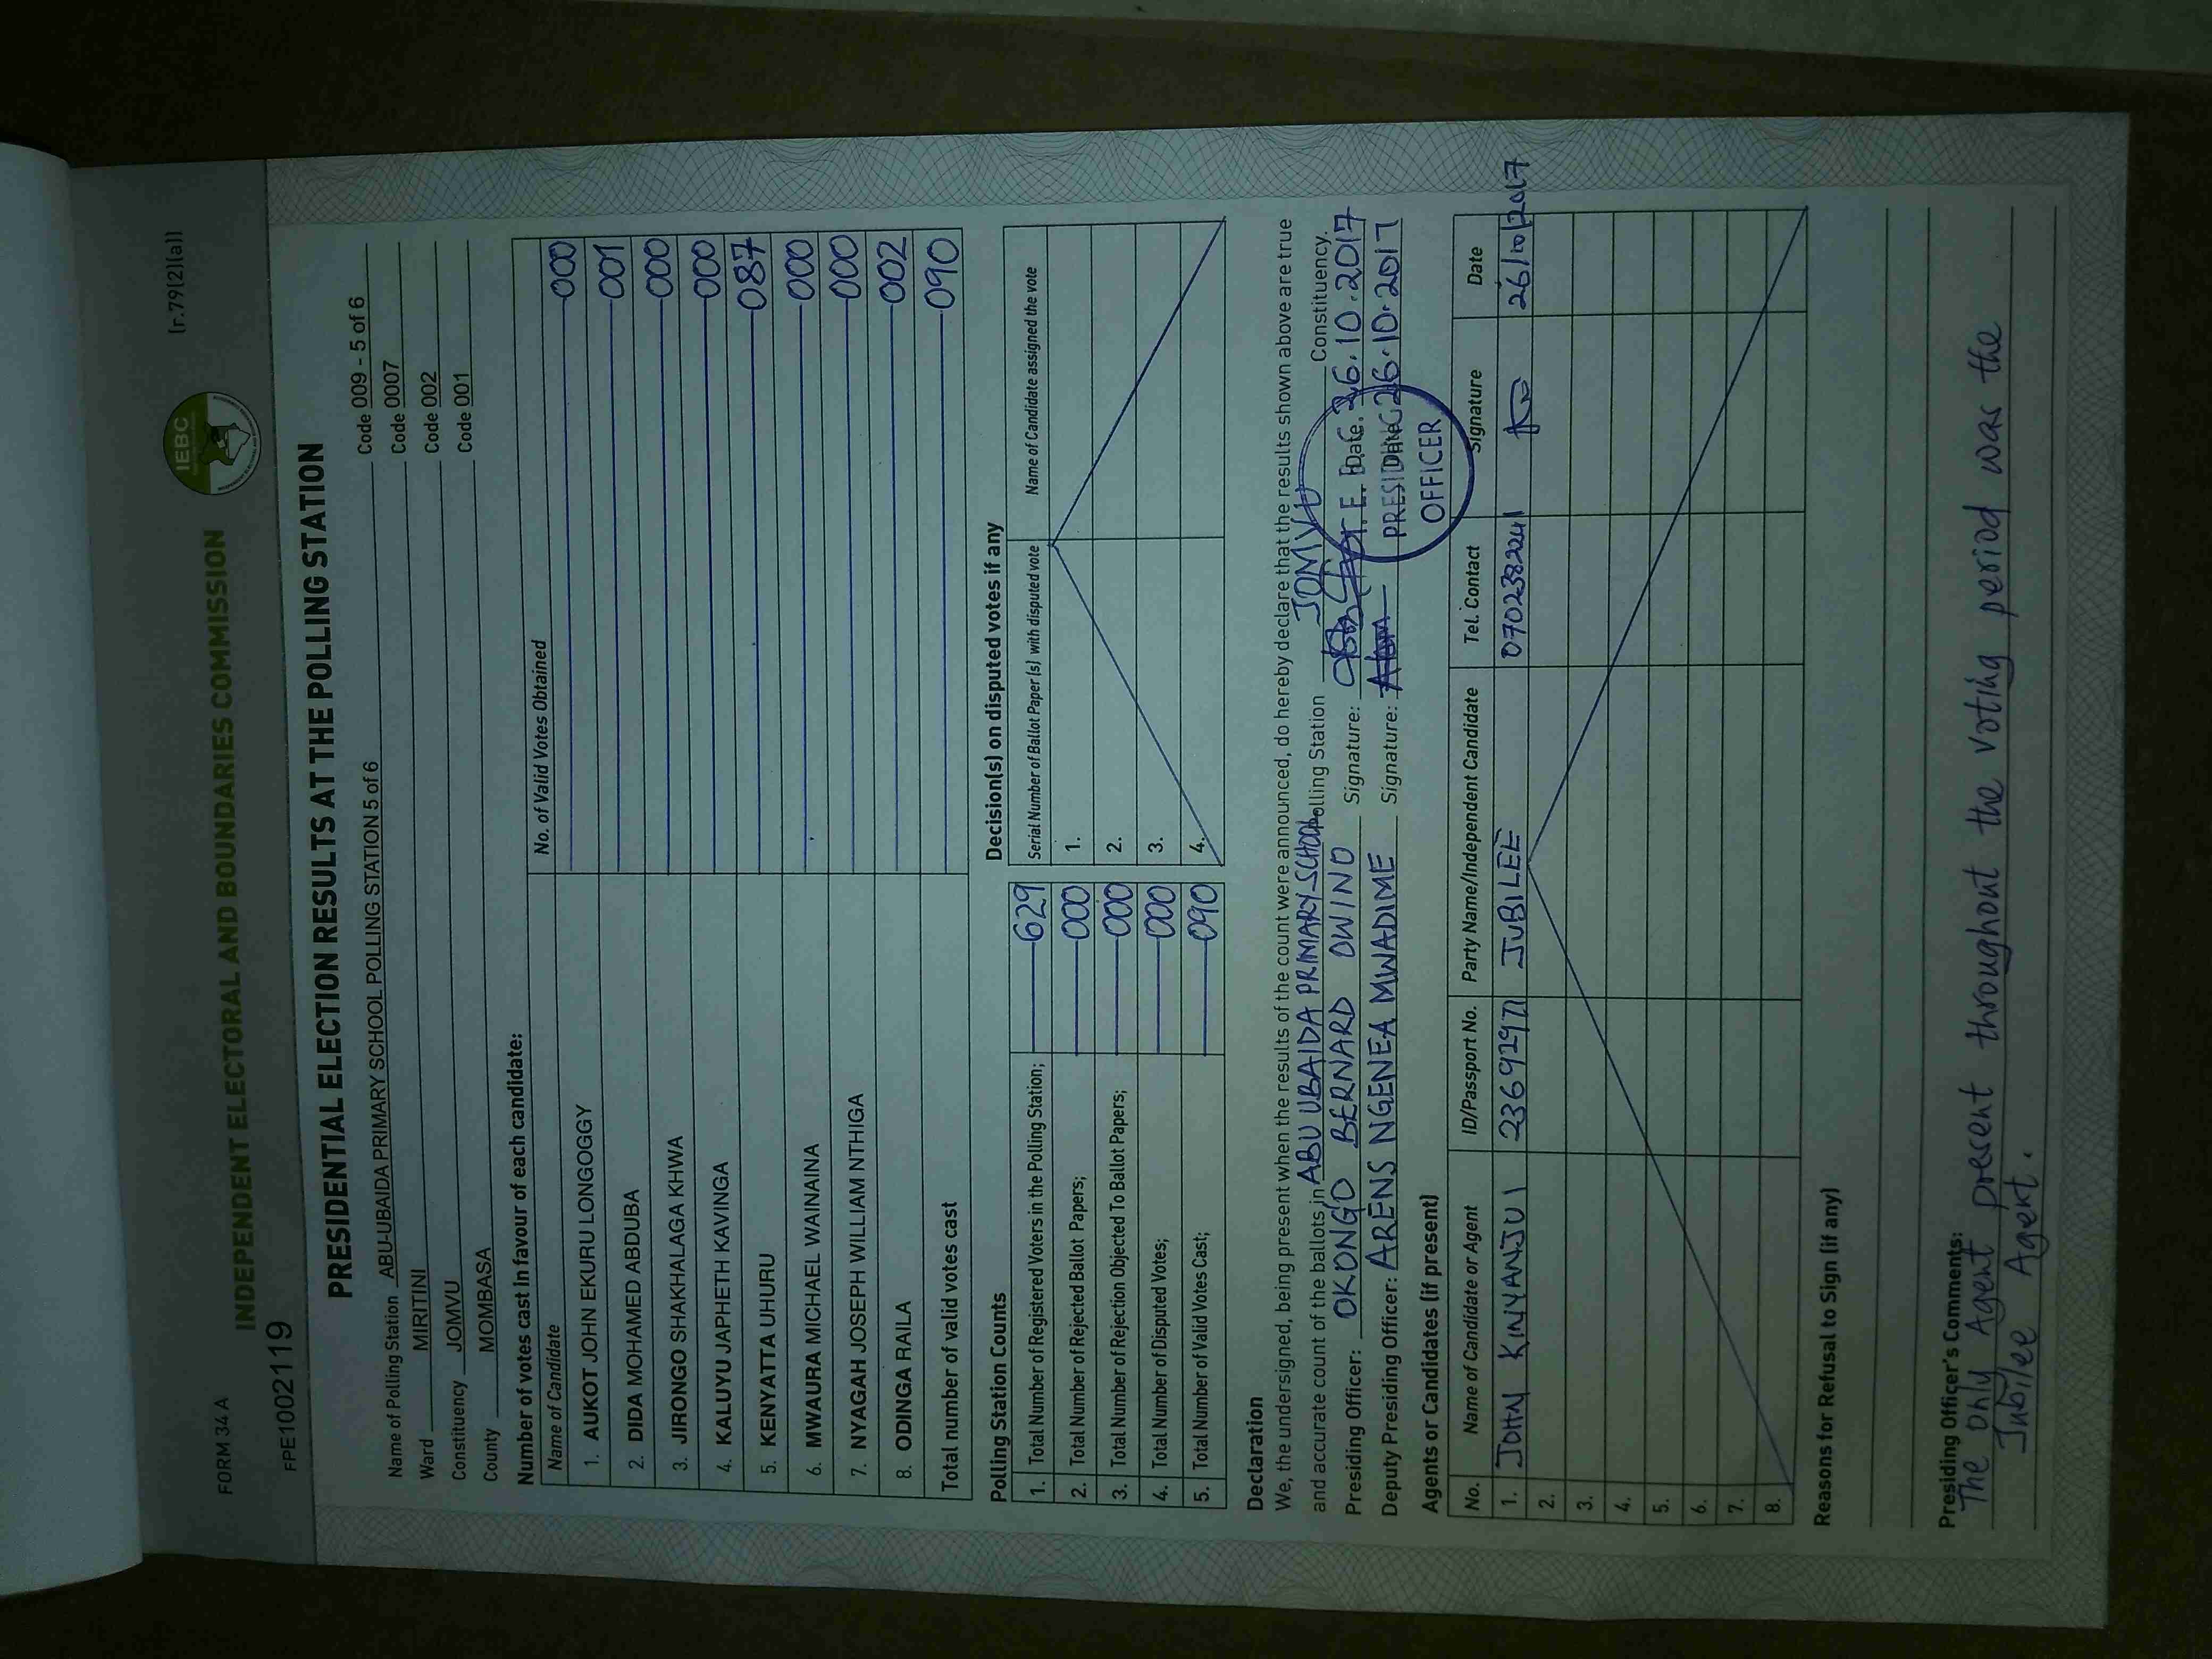 FORM 34 A
(r.79(2)(a))
IEBC
INDEPENDENT ELECTORAL AND BOUNDARIES COMMISSION
FPE1002119
PRESIDENTIAL ELECTION RESULTS AT THE POLLING STATION
Name of Polling Station ABU-UBAIDA PRIMARY SCHOOL POLLING STATION 5 of 6 Code 009 - 5 of 6
Ward MIRITINI Code 0007
Constituency JOMVU Code 002
County MOMBASA Code 001
Number of votes cast in favour of each candidate:
Name of Candidate No. of Valid Votes Obtained
1. AUKOT JOHN EKURU LONGOGGY 000
2. DIDA MOHAMED ABDUBA 001
3. JIRONGO SHAKHALAGA KHWA 000
4. KALUYU JAPHETH KAVINGA 000
5. KENYATTA UHURU 087
6. MWAURA MICHAEL WAINAINA 000
7. NYAGAH JOSEPH WILLIAM NTHIGA 000
8. ODINGA RAILA 002
Total number of valid votes cast 090
Polling Station Counts
1. Total Number of Registered Voters in the Polling Station; 629
2. Total Number of Rejected Ballot Papers; 000
3. Total Number of Rejection Objected To Ballot Papers; 000
4. Total Number of Disputed Votes; 000
5. Total Number of Valid Votes Cast; 090
Decision(s) on disputed votes if any
Serial Number of Ballot Paper (s) with disputed vote Name of Candidate assigned the vote
1.
2.
3.
4.
Declaration
We, the undersigned, being present when the results of the count were announced, do hereby declare that the results shown above are true
and accurate count of the ballots in ABU UBAIDA PRIMARY SCHOOL Polling Station JOMVU Constituency.
Presiding Officer: OKONGO BERNARD OWINO Signature: Date: 26.10.2017
Deputy Presiding Officer: ARENS NGENEA MWADIME Signature: Date: 26.10.2017
PRESIDING
OFFICER
Agents or Candidates (if present)
No. Name of Candidate or Agent ID/Passport No. Party Name/Independent Candidate Tel. Contact Signature Date
1. JOHN KINYANJUI JUBILEE 26/10/2017
2.
3.
4.
5.
6.
7.
8.
Reasons for Refusal to Sign (if any)
Presiding Officer's Comments:
The only Agent present throughout the voting period was the
Jubilee Agent.